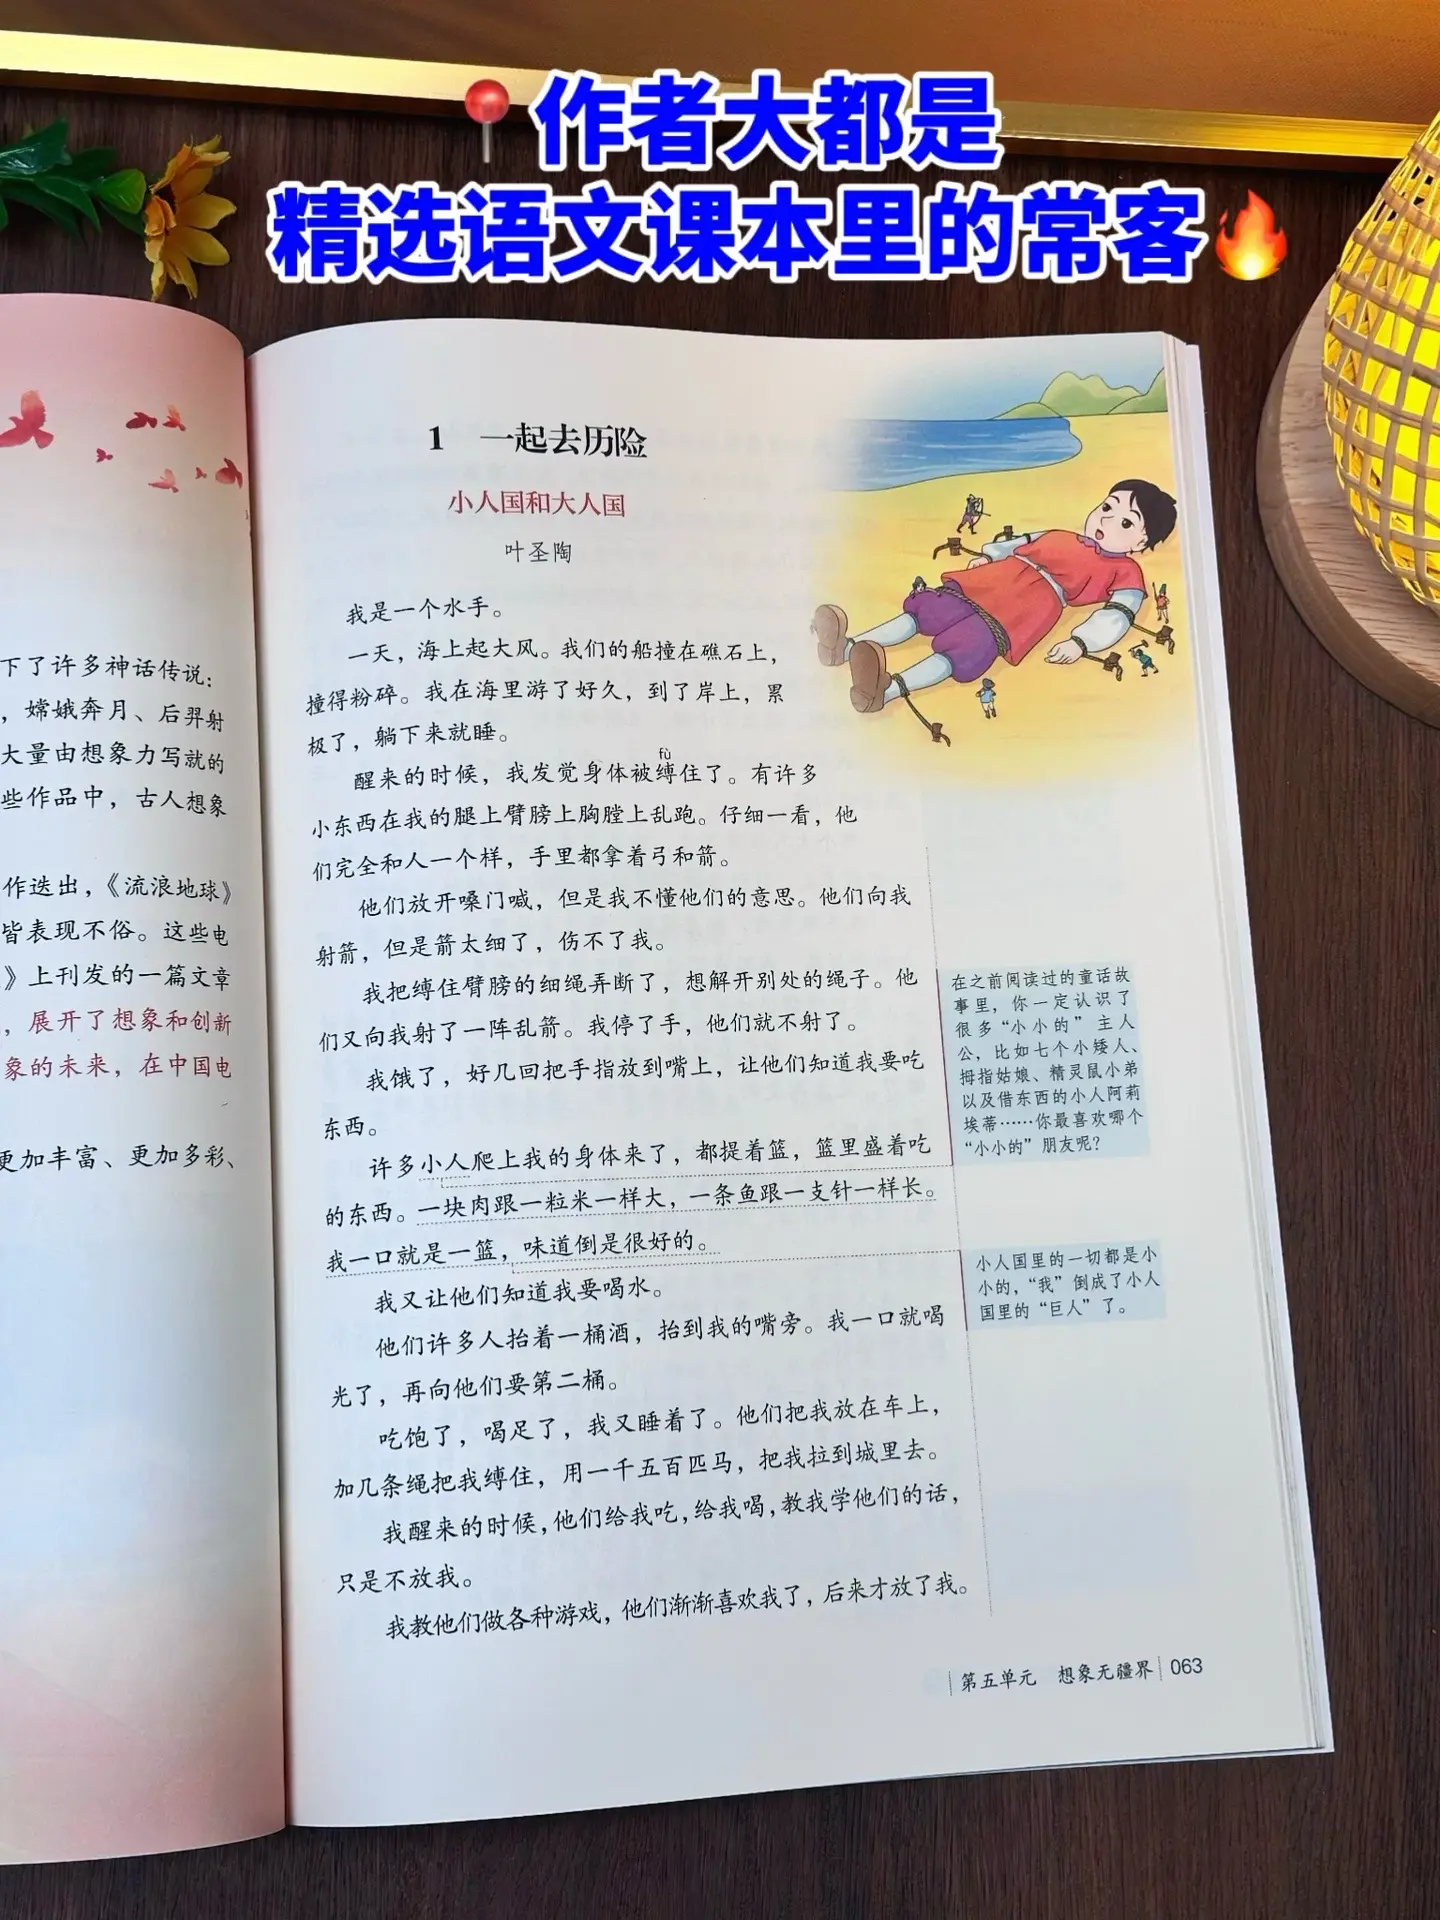 作者大都是
精选语文课本里的常客
下了许多神话传说：
，嫦娥奔月、后羿射
大量由想象力写就的
些作品中，古人想象
作迭出，《流浪地球》
皆表现不俗。这些电
》上刊发的一篇文章
，展开了想象和创新
象的未来，在中国电
更加丰富、更加多彩、
1 一起去历险
小人国和大人国
叶圣陶
我是一个水手。
一天，海上起大风。我们的船撞在礁石上，
撞得粉碎。我在海里游了好久，到了岸上，累
极了，躺下来就睡。
fù
醒来的时候，我发觉身体被缚住了。有许多
小东西在我的腿上臂膀上胸膛上乱跑。仔细一看，他
们完全和人一个样，手里都拿着弓和箭。
他们放开嗓门喊，但是我不懂他们的意思。他们向我
射箭，但是箭太细了，伤不了我。
我把缚住臂膀的细绳弄断了，想解开别处的绳子。他
们又向我射了一阵乱箭。我停了手，他们就不射了。
我饿了，好几回把手指放到嘴上，让他们知道我要吃
东西。
许多小人爬上我的身体来了，都提着篮，篮里盛着吃
的东西。一块肉跟一粒米一样大，一条鱼跟一支针一样长。
我一口就是一篮，味道倒是很好的。
我又让他们知道我要喝水。
他们许多人抬着一桶酒，抬到我的嘴旁。我一口就喝
光了，再向他们要第二桶。
吃饱了，喝足了，我又睡着了。他们把我放在车上，
加几条绳把我缚住，用一千五百匹马，把我拉到城里去。
我醒来的时候，他们给我吃，给我喝，教我学他们的话，
只是不放我。
我教他们做各种游戏，他们渐渐喜欢我了，后来才放了我。
在之前阅读过的童话故
事里，你一定认识了
很多“小小的”主人
公，比如七个小矮人、
拇指姑娘、精灵鼠小弟
以及借东西的小人阿莉
埃蒂……你最喜欢哪个
“小小的”朋友呢？
小人国里的一切都是小
小的，“我”倒成了小人
国里的“巨人”了。
第五单元 想象无疆界 063